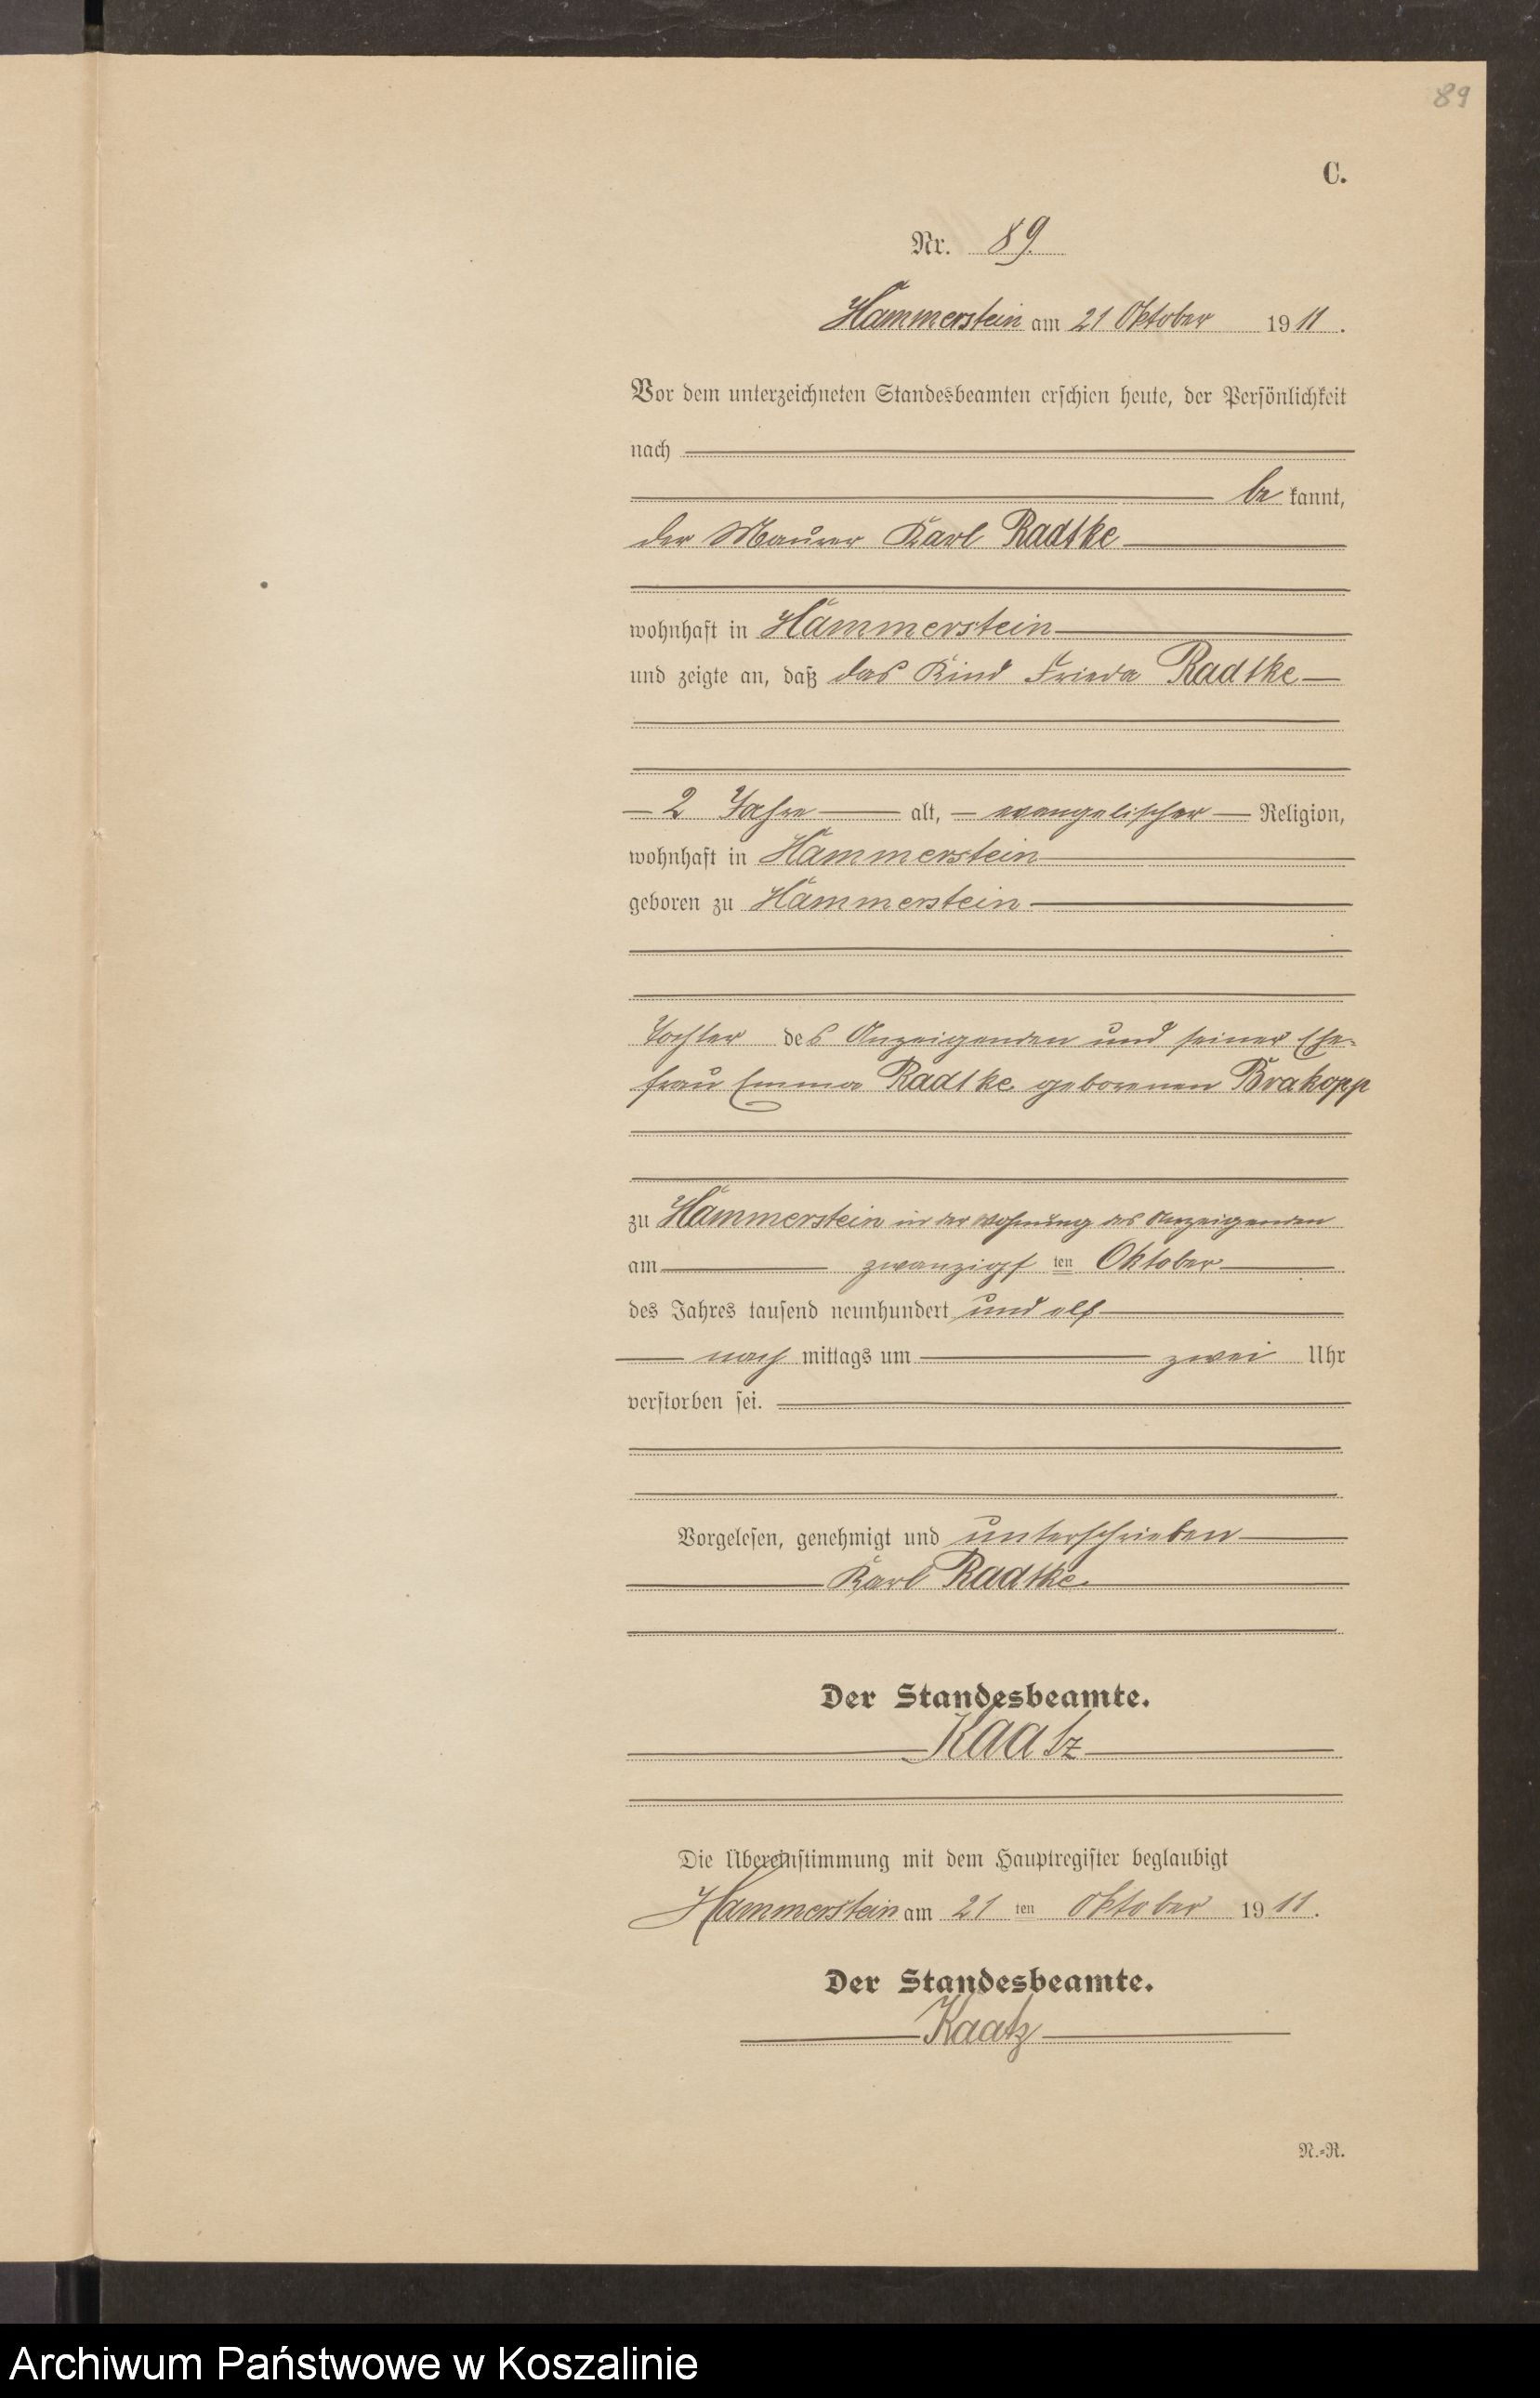 89
C.
Nr. 89.
Hammerstein am 21 Oktober 1911.
Vor dem unterzeichneten Standesbeamten erschien heute, der Persönlichkeit
nach
be kannt,
der Maurer Karl Radtke
wohnhaft in Hammerstein
und zeigte an, daß das Kind Frieda Radtke
2 Jahre alt, evangelischer Religion,
wohnhaft in Hammerstein
geboren zu Hammerstein
Tochter des Anzeigenden und seiner Ehe-
frau Emma Radtke geborenen Brakopp
zu Hammerstein in der Wohnung des Anzeigenden
am zwanzigsten Oktober
des Jahres tausend neunhundert und elf
nach mittags um zwei Uhr
verstorben sei.
Vorgelesen, genehmigt und unterschrieben
Karl Radtke.
Der Standesbeamte.
Kaatz
Die Übereinstimmung mit dem Hauptregister beglaubigt
Hammerstein am 21 ten Oktober 1911.
Der Standesbeamte.
Kaatz
N.-R.
Archiwum Państwowe w Koszalinie